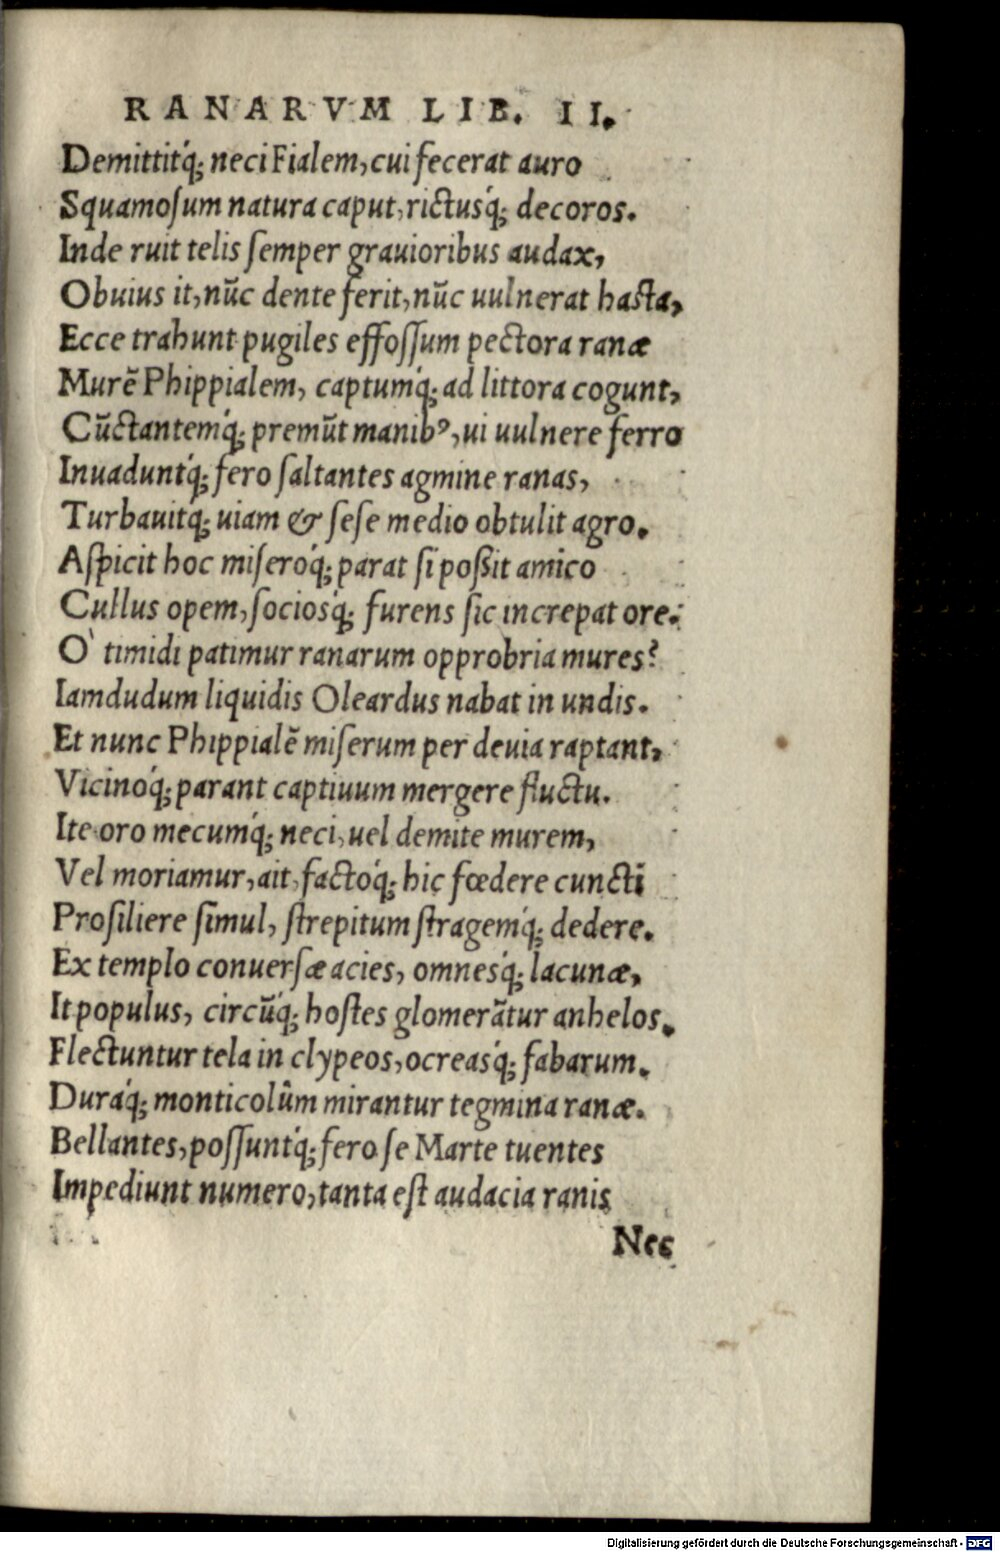 RANARVM LIB. II.
Demittitq́; neci Fialem, cui fecerat auro
Squamoſum natura caput, rictusq́; decoros.
Inde ruit telis ſemper grauioribus audax,
Obuius it, nũc dente ferit, nũc uulnerat haſta,
Ecce trahunt pugiles effoſſum pectora ranæ
Murẽ Phippialem, captumq́; ad littora cogunt,
Cũctantemq́; premũt manibꝰ, ui uulnere ferro
Inuaduntq́; fero ſaltantes agmine ranas,
Turbauitq́; uiam & ſeſe medio obtulit agro.
Aſpicit hoc miſeroq́; parat ſi poßit amico
Cullus opem, ſociosq́; furens ſic increpat ore:
O` timidi patimur ranarum opprobria mures?
Iamdudum liquidis Oleardus nabat in undis.
Et nunc Phippialẽ miſerum per deuia raptant,
Vicinoq́; parant captiuum mergere fluctu.
Ite oro mecumq́; neci, uel demite murem,
Vel moriamur, ait, factoq́; hic fœdere cuncti
Proſiliere ſimul, ſtrepitum ſtragemq́; dedere.
Ex templo conuerſæ acies, omnesq́; lacunæ,
It populus, circũq́; hoſtes glomerãtur anhelos.
Flectuntur tela in clypeos, ocreasq́; fabarum.
Duraq́; monticolûm mirantur tegmina ranæ.
Bellantes, poſſuntq́; fero ſe Marte tuentes
Impediunt numero, tanta eſt audacia ranis
Nec
Digitalisierung gefördert durch die Deutsche Forschungsgemeinschaft - DFG